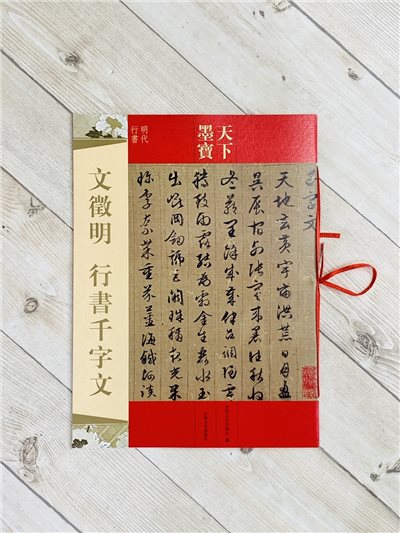 天下
墨寶
明代
行書
文徵明 行書千字文
千字文
天地玄黃宇宙洪荒日月盈
昃辰宿列張寒來暑往秋收
冬藏閏餘成歲律呂調陽雲
騰致雨露結為霜金生麗水玉
出崑岡劍號巨闕珠稱夜光果
珍李柰菜重芥薑海鹹河淡